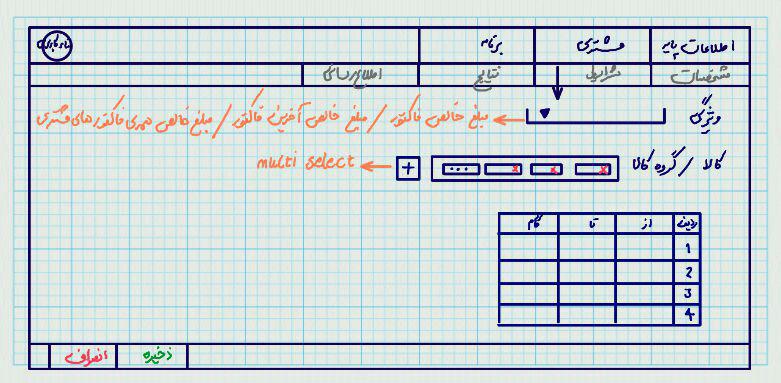 اطلاعات پایه مشتری برنامه
مشخصات شرایط نتایج اطلاع رسانی
ویژگی مبلغ خالص فاکتور / مبلغ خالص آخرین فاکتور / مبلغ خالص همه‌ی فاکتورهای مشتری
کالا / گروه کالا ... + multi select
ردیف از تا گام
1
2
3
4
ذخیره انصراف